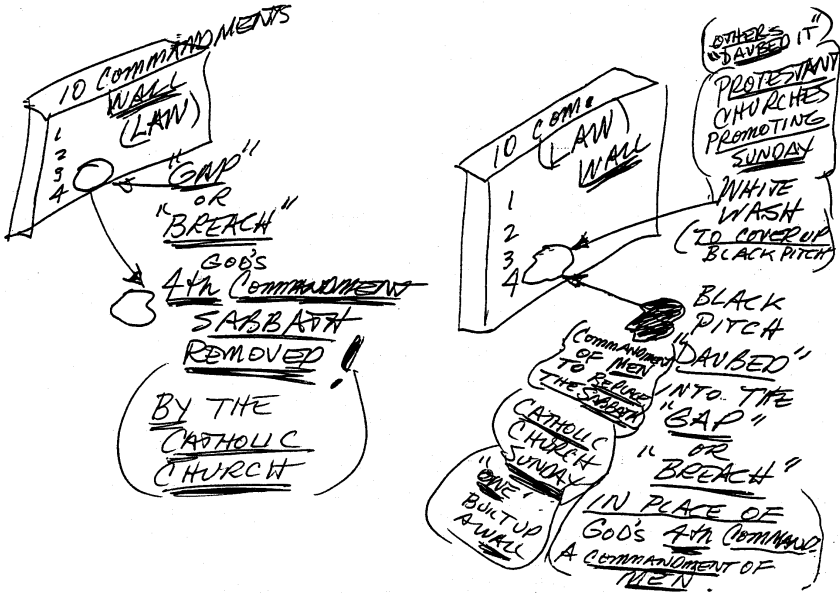 10 COMMANDMENTS
WALL
(LAW)
1
2
3
4
"GAP"
OR
"BREACH"
GOD'S
4th COMMANDMENT
SABBATH
REMOVED!
BY THE
CATHOLIC
CHURCH
10 COM.
(LAW)
WALL
1
2
3
4
(OTHERS
"DAUBED IT")
PROTESTANT
CHURCHES
PROMOTING
SUNDAY
WHITE
WASH
(TO COVER UP
BLACK PITCH)
BLACK
PITCH
"DAUBED"
INTO THE
"GAP"
"OR
BREACH"
IN PLACE OF
GOD'S 4th COMMAND
A COMMANDMENT OF
MEN.
COMMANDMENT
OF MEN
TO REPLACE
THE SABBATH
CATHOLIC
CHURCH
SUNDAY
"ONE"
BUILT UP
A WALL